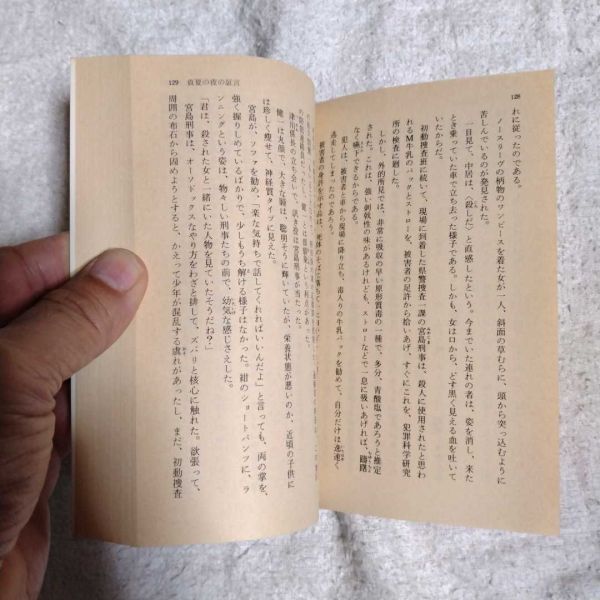 128
れに従ったのである。
ノースリーヴの柄物のワンピースを着た女が一人、斜面の草むらに、頭から突っ込むように
苦しんでいるのが発見された。
一目見て、中居は、〈殺しだ〉と直感したという。今までいた連れの者は、姿を消し、来た
とき乗っていた車で立ち去った様子である。しかも、女は口から、どす黒く見える血を吐いて
いたからだ。
初動捜査班に続いて、現場に到着した県警捜査一課の宮島刑事は、殺人に使用されたと思わ
れるM牛乳のパックとストローを、被害者の足許から拾いあげ、すぐにこれを、犯罪科学研究
所の検査に廻した。
しかし、外的所見では、非常に吸収の早い原形質毒の一種で、多分、青酸塩であろうと推定
された。これは、強い刺戟性の味があるけれども、ストローなどで一息に吸いあげれば、躊躇
なく嚥下できるからである。
犯人は、被害者と車から現場に降り立ち、毒入りの牛乳パックを勧めて、自分だけは逸速く
逃走してしまったのであろう。
被害者の身許を示す品は、死体のそばに落ちて
129 真夏の夜の証言
津川係長の立ち会いで、訊き役は宮島刑事が当たった。
健一は丸顔で、大きな瞳は、聡明そうに輝いていたが、栄養状態が悪いのか、近頃の子供に
は珍しく痩せて、神経質タイプに見えた。
宮島が、ソファを勧め、「楽な気持ちで話してくれればいいんだよ」と言っても、両の掌を、
強く握りしめているばかりで、少しもうち解ける様子はなかった。紺のショートパンツに、ラ
ンニングという姿は、物々しい刑事たちの前で、幼気な感じさえした。
「君は、殺された女と一緒にいた人物を見ていたそうだね？」
宮島刑事は、オーソドックスなやり方をわざと排して、ズバリと核心に触れた。欲張って、
周囲の布石から固めようとすると、かえって少年が混乱する虞れがあったし、まだ、初動捜査